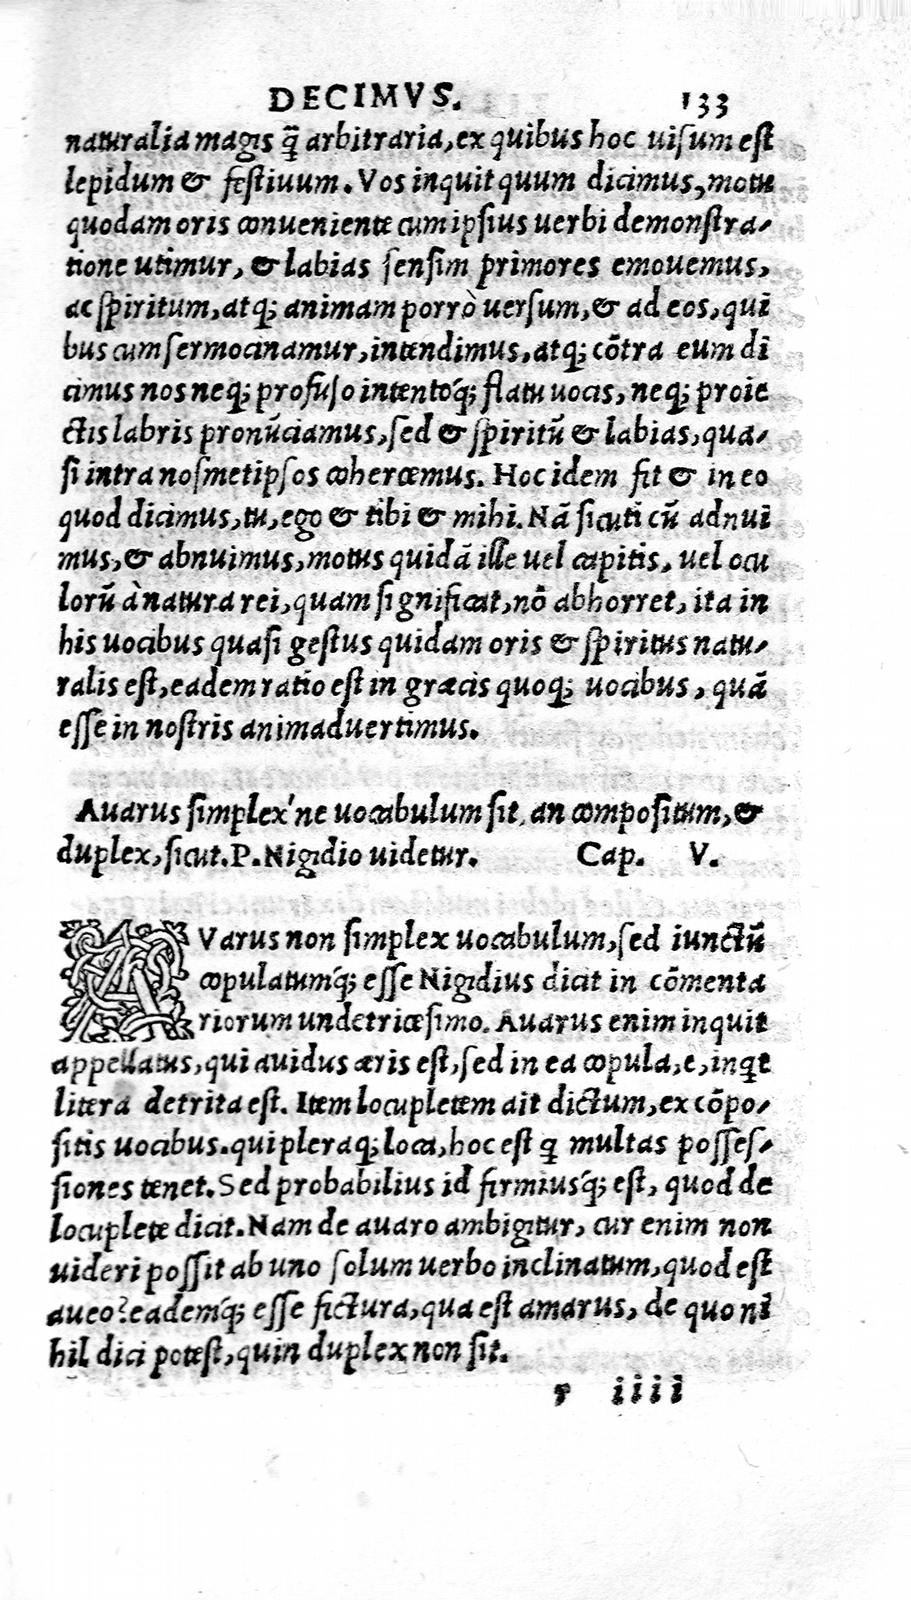 DECIMVS. 133
naturalia magis q̃ arbitraria, ex quibus hoc uisum est
lepidum & festiuum. Vos inquit quum dicimus, motu
quodam oris conueniente cum ipsius uerbi demonstra-
tione utimur, & labias sensim primores emouemus,
ac spiritum, atq; animam porrò uersum, & ad eos, qui
bus cum sermocinamur, intendimus, atq; cõtra eum di
cimus nos neq; profuso intentoq́; flatu uocis, neq; proie
ctis labris pronũciamus, sed & spiritũ & labias, qua-
si intra nosmetipsos cohercemus. Hoc idem fit & in eo
quod dicimus, tu, ego & tibi & mihi. Nã sicuti cũ adnui
mus, & abnuimus, motus quidã ille uel capitis, uel ocu
lorũ à natura rei, quam significat, nõ abhorret, ita in
his uocibus quasi gestus quidam oris & spiritus natu-
ralis est, eadem ratio est in græcis quoq; uocibus, quã
esse in nostris animaduertimus.
Auarus simplex'ne uocabulum sit, an compositum, &
duplex, sicut. P. Nigidio uidetur. Cap. V.
AVarus non simplex uocabulum, sed iunctũ
copulatumq́; esse Nigidius dicit in cõmenta
riorum undetricesimo. Auarus enim inquit
appellatus, qui auidus æris est, sed in ea copula, e, inq̃t
litera detrita est. Item locupletem ait dictum, ex cõpo-
sitis uocibus. qui pleraq; loca, hoc est q̃ multas posses-
siones tenet. Sed probabilius id firmiusq́; est, quod de
locuplete dicit. Nam de auaro ambigitur, cur enim non
uideri possit ab uno solum uerbo inclinatum, quod est
aueo? eademq́; esse fictura, qua est amarus, de quo ni
hil dici potest, quin duplex non sit.
r iiii